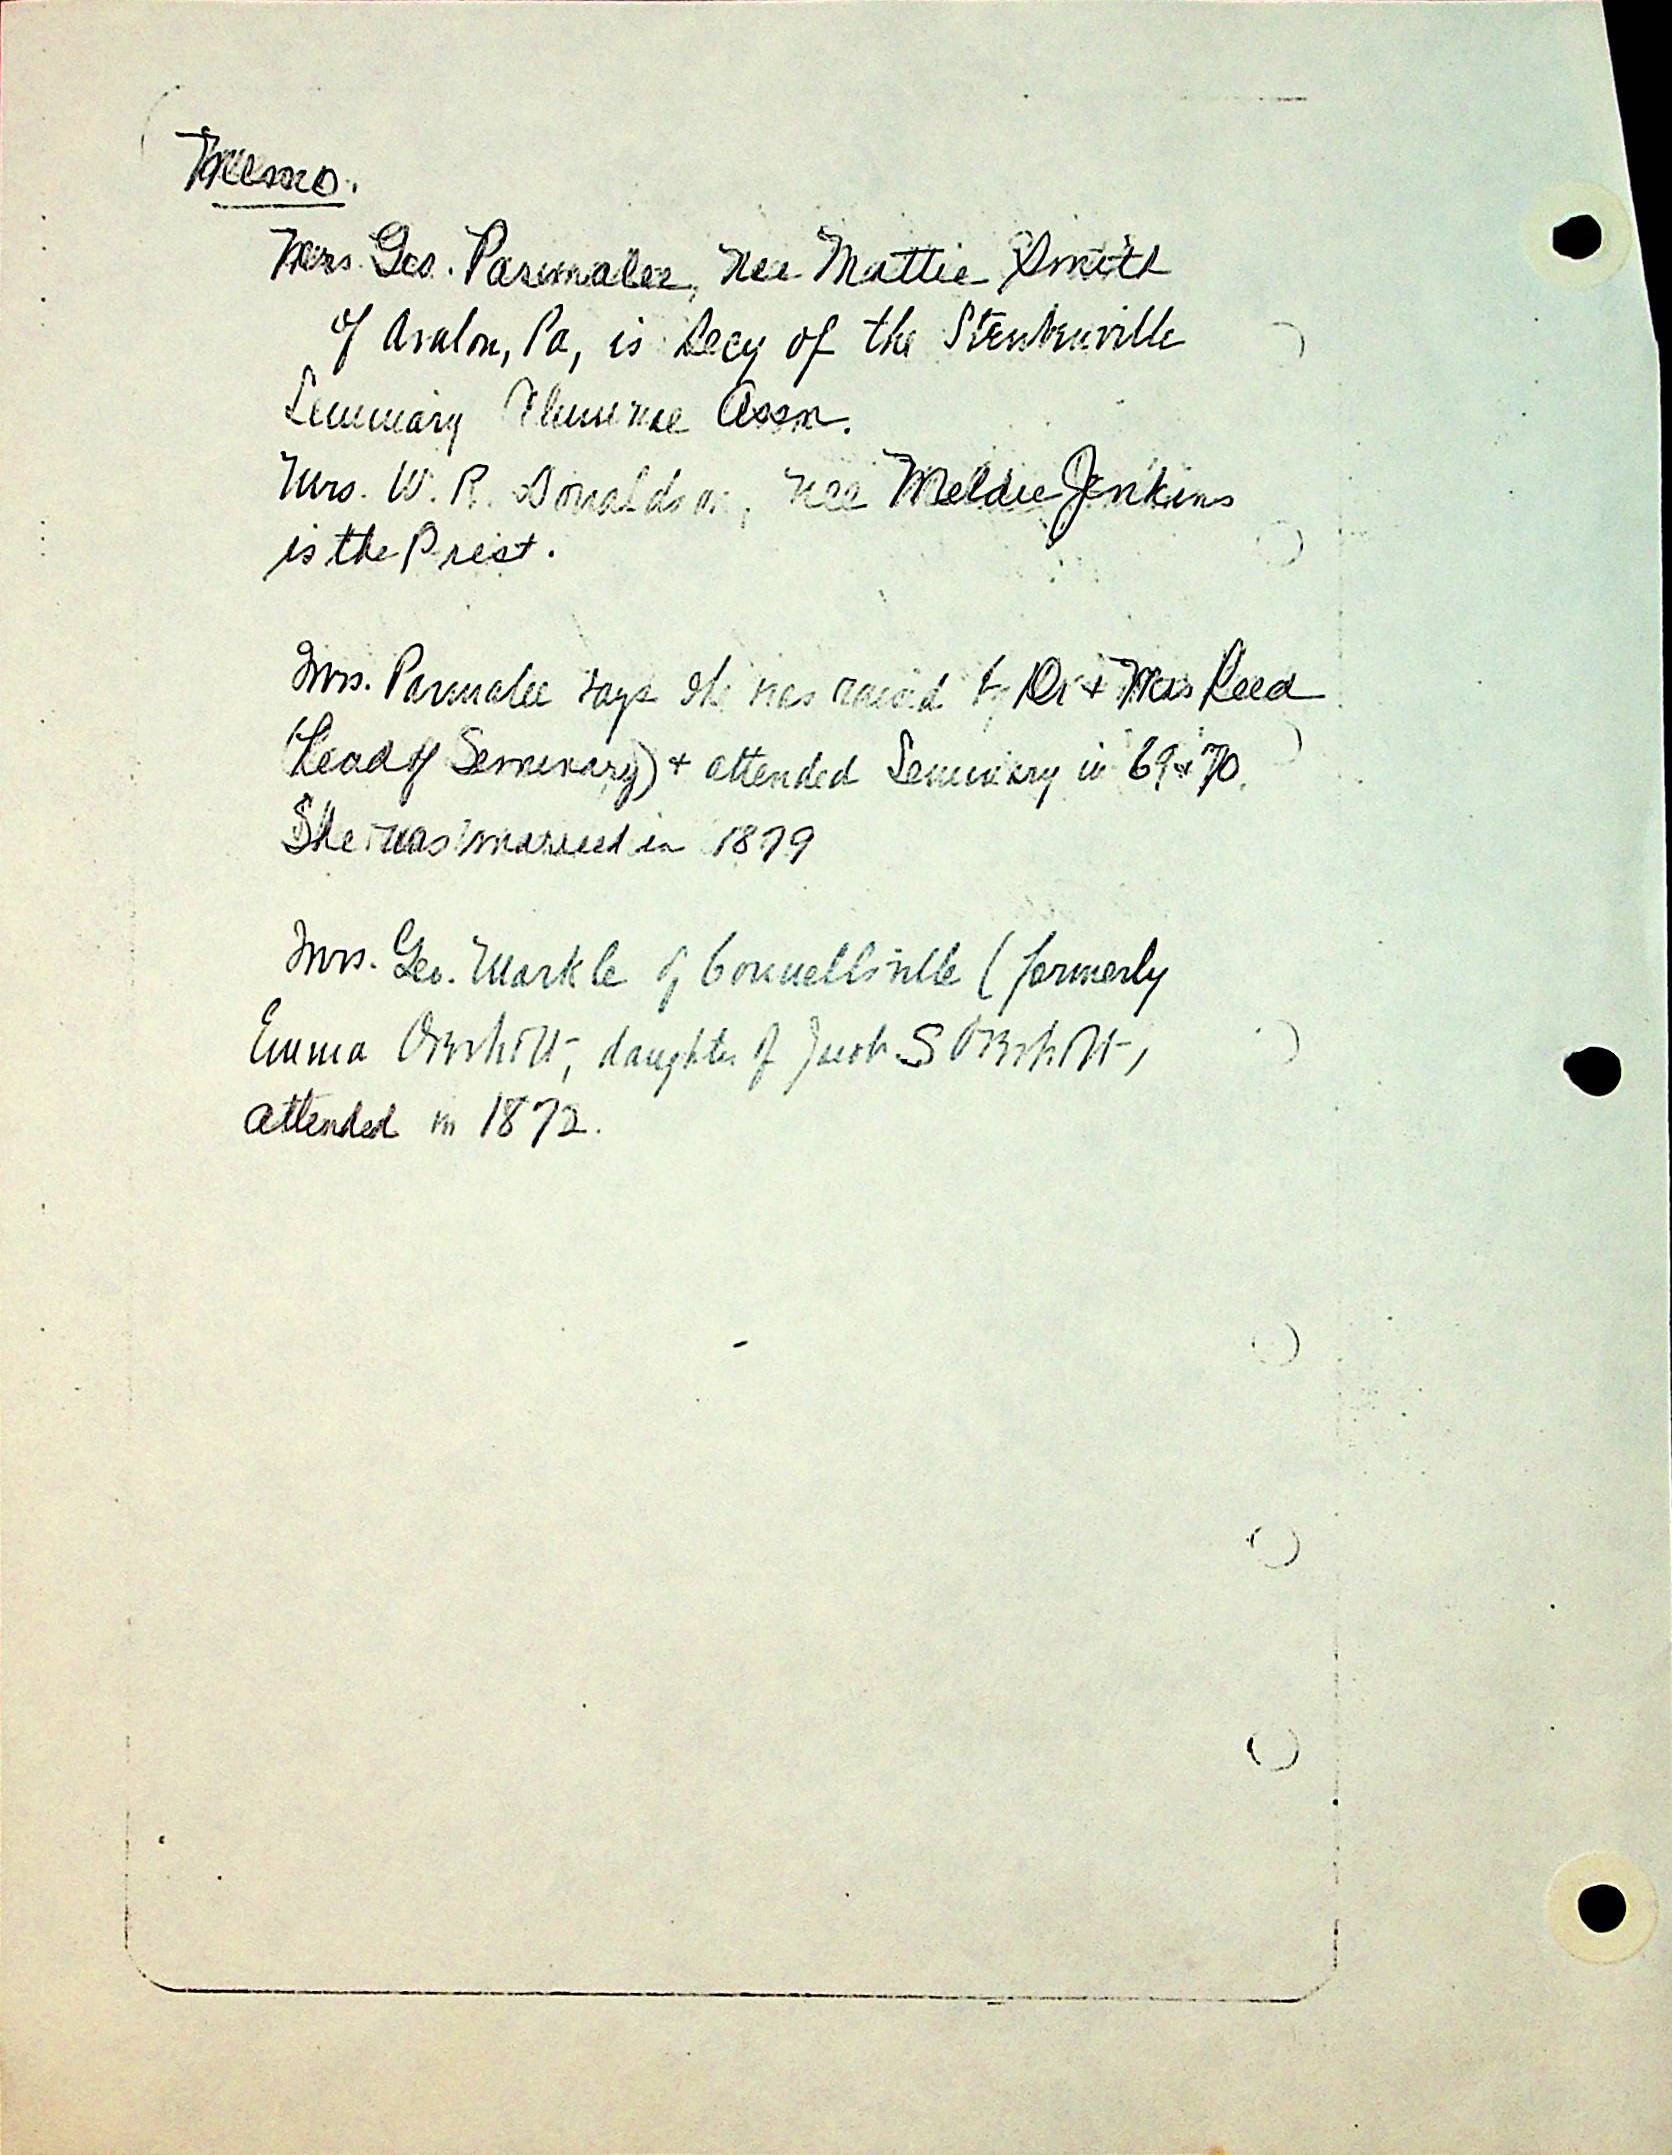 Memo.
Mrs. Geo. Parmalee, nee Mattie Smith
of Avalon, Pa, is Secy of the Steubenville
Seminary Alumnae Assn.
Mrs. W. R. Donaldson, nee Meldie Jenkins
is the Prest.
Mrs. Parmalee says she was raised by Dr + Mrs Reed
(Head of Seminary) + attended Seminary in 69 + 70.
She was married in 1879
Mrs. Geo. Markle of Connellsville (formerly
Emma Overholt, daughter of Jacob S Overholt,
attended in 1872.